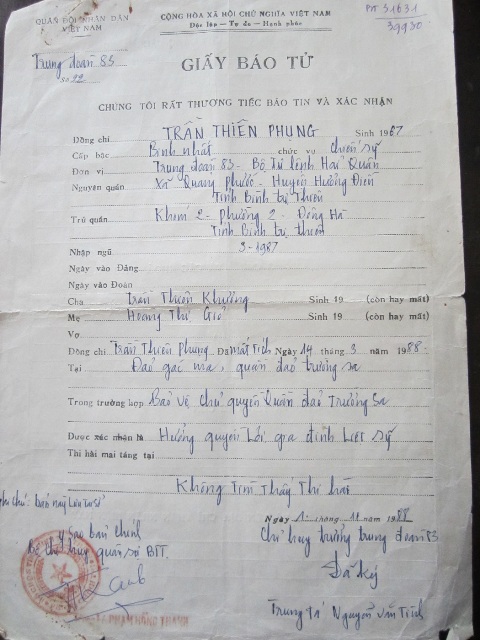 QUÂN ĐỘI NHÂN DÂN
VIỆT NAM
CỘNG HÒA XÃ HỘI CHỦ NGHĨA VIỆT NAM
Độc lập — Tự do — Hạnh phúc
31631
39930
Trung đoàn 83
Số 22
GIẤY BÁO TỬ
CHÚNG TÔI RẤT THƯƠNG TIẾC BÁO TIN VÀ XÁC NHẬN
Đồng chí TRẦN THIÊN PHỤNG Sinh 1967
Cấp bậc Binh nhất chức vụ chiến sỹ
Đơn vị Trung đoàn 83 - Bộ Tư lệnh Hải Quân
Nguyên quán Xã Quảng Phước - Huyện Hương Điền
Tỉnh Bình trị Thiên
Trú quán Khóm 2 - Phường 2 - Đông Hà
Tỉnh Bình trị thiên
Nhập ngũ 3-1987
Ngày vào Đảng
Ngày vào Đoàn
Cha Trần Thiên Khưởng Sinh 19 (còn hay mất)
Mẹ Hoàng Thị Sinh 19 (còn hay mất)
Vợ
Đồng chí Trần Thiên Phụng Đã mất tích Ngày 14 tháng 3 năm 1988
Tại Đảo gạc ma, quần đảo trường sa
Trong trường hợp Bảo vệ chủ quyền Quần đảo Trường Sa
Được xác nhận là Hưởng quyền lợi gia đình Liệt sỹ
Thi hài mai táng tại
Không Tìm Thấy Thi hài
Ngày 1 tháng 11 năm 1988
Sao bản chính
Chỉ huy trưởng trung đoàn 83
Bộ chỉ huy quân sự BTT.
Đã Ký
Trung tá Nguyễn Văn Tích